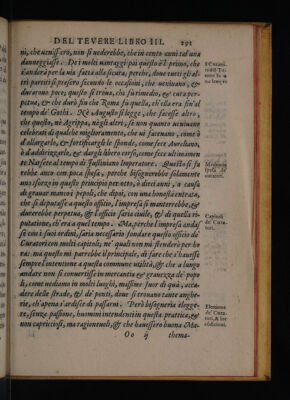 DEL TEVERE LIBRO III. 291
ni, che uenissero, non si uederebbe, che in cento anni tal'una
danneggiasse. De i molti uantaggi poi questo è il primo, che
s'anderà per la uia fatta alla sicura, perche, doue tutti gli al-
tri partiti si preser secondo le occasioni, che uenivano, &
durarono poco; questo si troua, che fu rimedio, & cura perpe-
tua, & che durò fin che Roma fu quella, ch'ella era fin al
tempo de' Gothi. Nè Augusto si legge, che facesse altro
che questo, nè Agrippa, nè gli altri, se non quanto uenivano
celebrati di qualche miglioramento, che ui faceuano, come è
d'allargarlo, & fortificargli le sponde, come fece Aureliano,
è d'addirizzarlo, & dargli libero corso, come fece ultimamen
te Narsete al tempo di Iustiniano Imperatore. Questo si fa
rebbe anco con poca spesa, perche bisognerebbe solamente
uno sforzo in questo principio per otto, ò dieci anni, a causa
de grauar manco i popoli, che dipoi, con una honesta entrata,
che si deputasse a questo officio, l'impresa si manterrebbe, &
durerebbe perpetua, & l'officio saria ciuile, & di quella ri-
putatione, ch'era a quel tempo. Ma, perche l'impresa andas
se con i suoi ordini, saria necessario fondare questo officio de'
Curatori con molti capitoli, ne' quali non mi stenderò per ho
ra: ma questo mi parrebbe il principale, di fare che s'hauesse
sempre l'intentione a questa commune utilità, & che a lungo
andare non si conuertisse in mercantia & grauezza de' popo
li, come uediamo in molti luoghi, massime fuor di quà, acca-
dere delle strade, & de' ponti, doue si trouano tante anghe-
rie, ch'apena s'ardisce di passarui. Però bisogneria elegge-
re, senza passione, huomini intendenti in questa prattica, &
non capricciosi, ma ragioneuoli, & che hauessero buona Ma-
Oo ij thema-
Capitoli
de' Cura-
tori.
Elettione
de' Cura-
tori, & lor